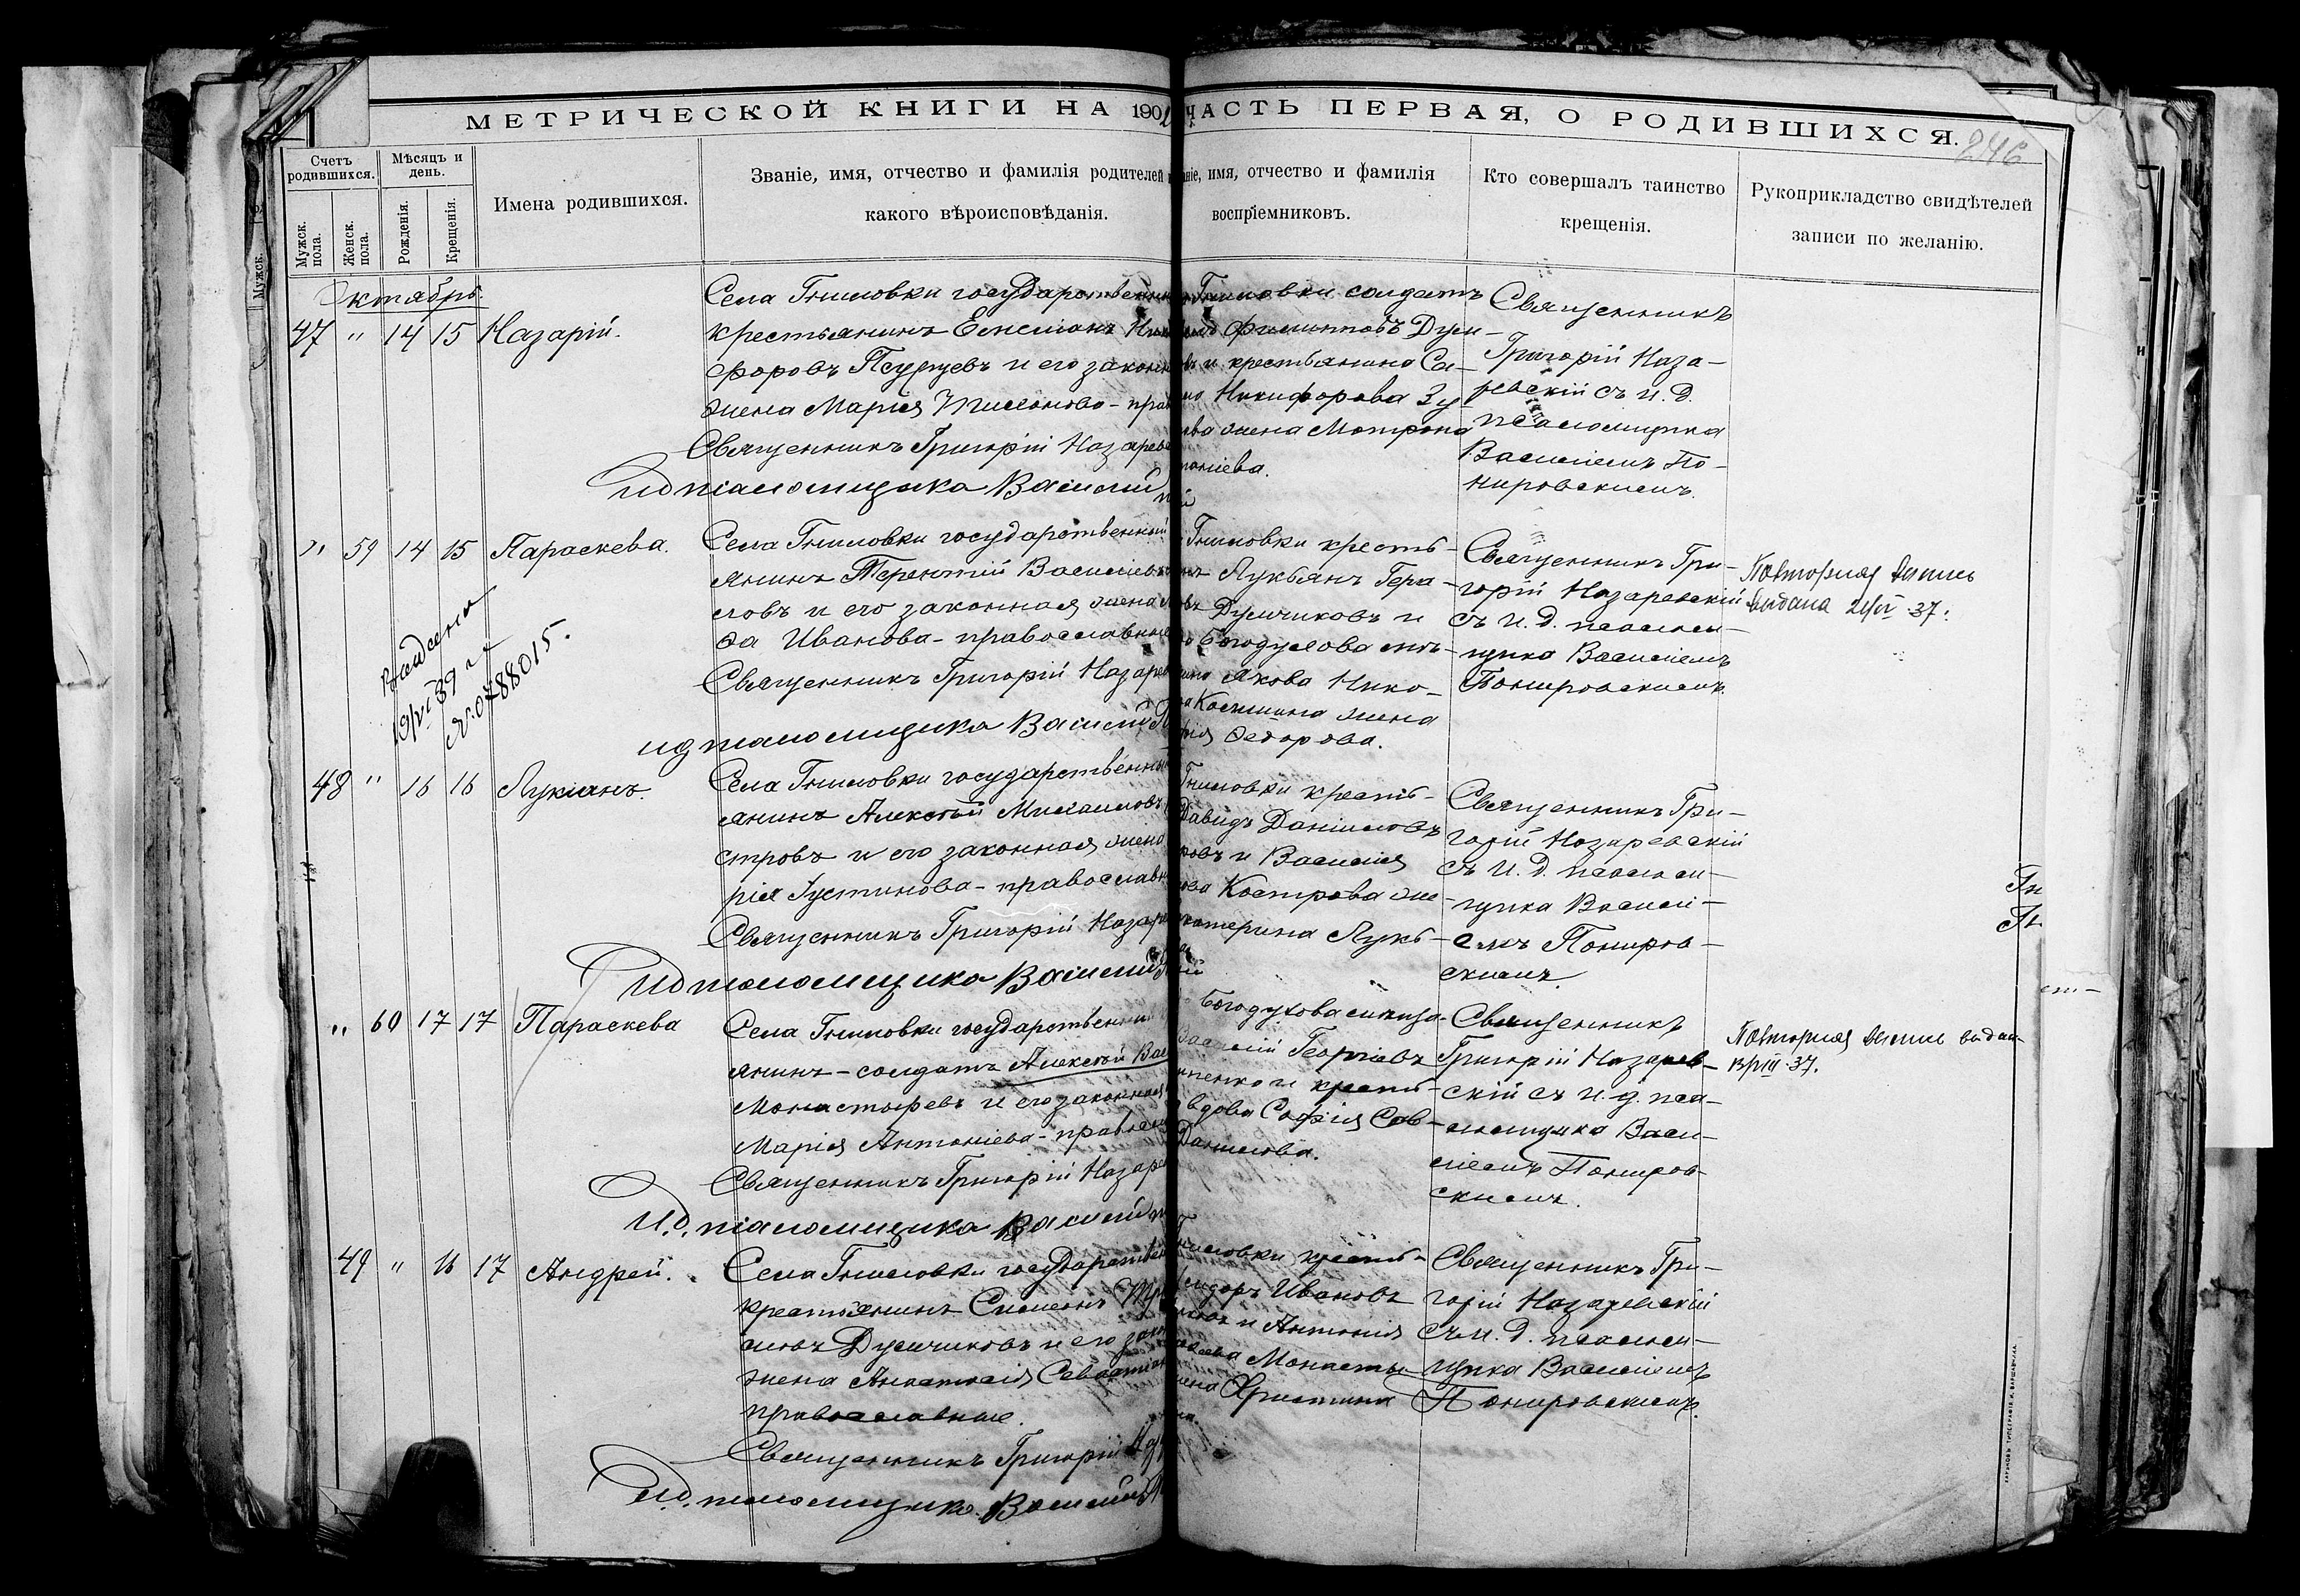 МЕТРИЧЕСКОЙ КНИГИ НА 190
ЧАСТЬ ПЕРВАЯ, О РОДИВШИХСЯ.
246
Счетъ родившихся.
Мѣсяцъ и день.
Мужск. пола.
Женск. пола.
Рожденія.
Крещенія.
Имена родившихся.
Званіе, имя, отчество и фамилія родителей
какого вѣроисповѣданія.
имя, отчество и фамилія
воспріемниковъ.
Кто совершалъ таинство
крещенія.
Рукоприкладство свидѣтелей
записи по желанію.
Мужск.
Октябрь.
47 " 14 15 Назарій.
Села Гниловки государственный
крестьянинъ Емеліанъ
форовъ и его законная
жена Марія Тихонова - прав
Священникъ Григорій Назарев
ид псаломщика Василій
Гниловки солдатъ
Филипповъ Дум-
и крестьянина Са-
Никифорова Зу-
жена Матрона
Священникъ
Григорій Наза-
ревскій съ и. д.
псаломщика
Василіемъ По-
нировскимъ.
" 59 14 15 Параскева.
Села Гниловки государственный
янинъ Терентій Василіевъ
ловъ и его законная жена
Иванова - православные
Священникъ Григорій Назарев
ид псаломщика Василій
Гниловки кресть-
Лукьянъ Гера-
Думчиковъ и
Богодухова мѣ-
Якова Нико-
Космина жена
Федорова.
Священникъ Гри-
горій Назаревскій
съ и. д. псалом-
щика Василіемъ
Понировскимъ.
Повторная запись
выдана 37.
Выдана
19/VI 39 г
№ 0788015.
48 " 16 16 Лукіанъ.
Села Гниловки государственный
янинъ Алексѣй Михаиловъ
стровъ и его законная жена
рія Іустинова - православн
Священникъ Григорій Назаре
ид псаломщика Василій
Гниловки кресть-
Давидъ Даніиловъ
ровъ и Василія
Кострова же-
катерина Лукь-
Священникъ Гри-
горій Назаревскій
съ и. д. псалом-
щика Васил-
емъ Пониров-
скимъ.
" 60 17 17 Параскева
Села Гниловки государственный
янинъ - солдатъ Алексѣй Вас
Монастыревъ и его законная
Марія Антоніева - правосл
Священникъ Григорій Назаре
И.д. псаломщика Василій
Богодухова мѣща-
Василій Георгіевъ
енко и кресть-
вдова Софія Сав-
Данилова.
Священникъ
Григорій Назарев-
скій съ и. д. пса-
ломщика Васи-
ліемъ Пониров-
скимъ.
Повторная запись выдан
37.
49 " 16 17 Андрей.
Села Гниловки государствен
крестьянинъ Симеонъ
ловъ Думчиковъ и его зак
жена Анастасія Севастіан
православные.
Священникъ Григорій
И.д. псаломщика Василій
Гниловки кресть-
Исидоръ Ивановъ
и Антонія
Монасты-
Христина
Священникъ Гри-
горій Назаревскій
съ и. д. псалом-
щика Василіемъ
Понировскимъ.
Гн
Гн